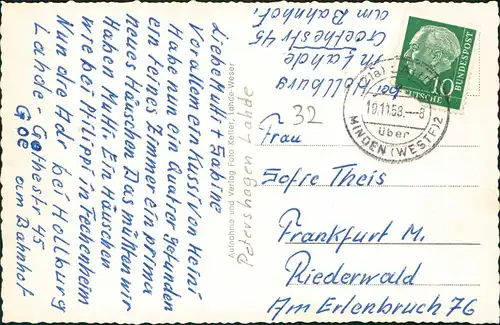 Liebe Mutti + Sabine
Vor allem ein Kussi von Heini
Habe nun ein Quatier gefunden
ein feines Zimmer ein prima
neues Häuschen Das müsten wir
Haben Mutti Ein Häuschen
wie bei Philippi in Fechenheim
Nun die Adr bei Hollburg
Lahde - Gothestr 45
Goe am Bahnhof
Aufnahme und Verlag Foto Keller, Lahde-Weser
Petershagen Lahde
bei Hollburg
in Lahde
Goethestr 45
am Bahnhof.
32
(21a)
10.11.58.-8
über
MINDEN (WESTF) 2
10
DEUTSCHE BUNDESPOST
Frau
Sofre Theis
Frankfurt M.
Riederwald
Am Erlenbruch 76